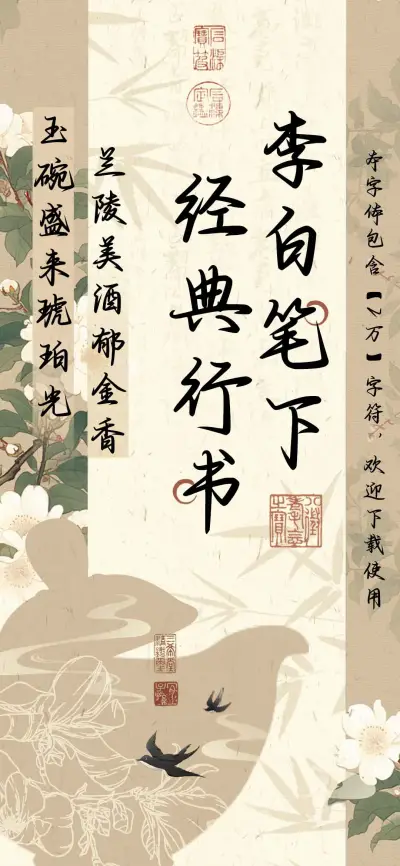 本字体包含【2万】字符，欢迎下载使用
李白笔下
经典行书
兰陵美酒郁金香
玉碗盛来琥珀光